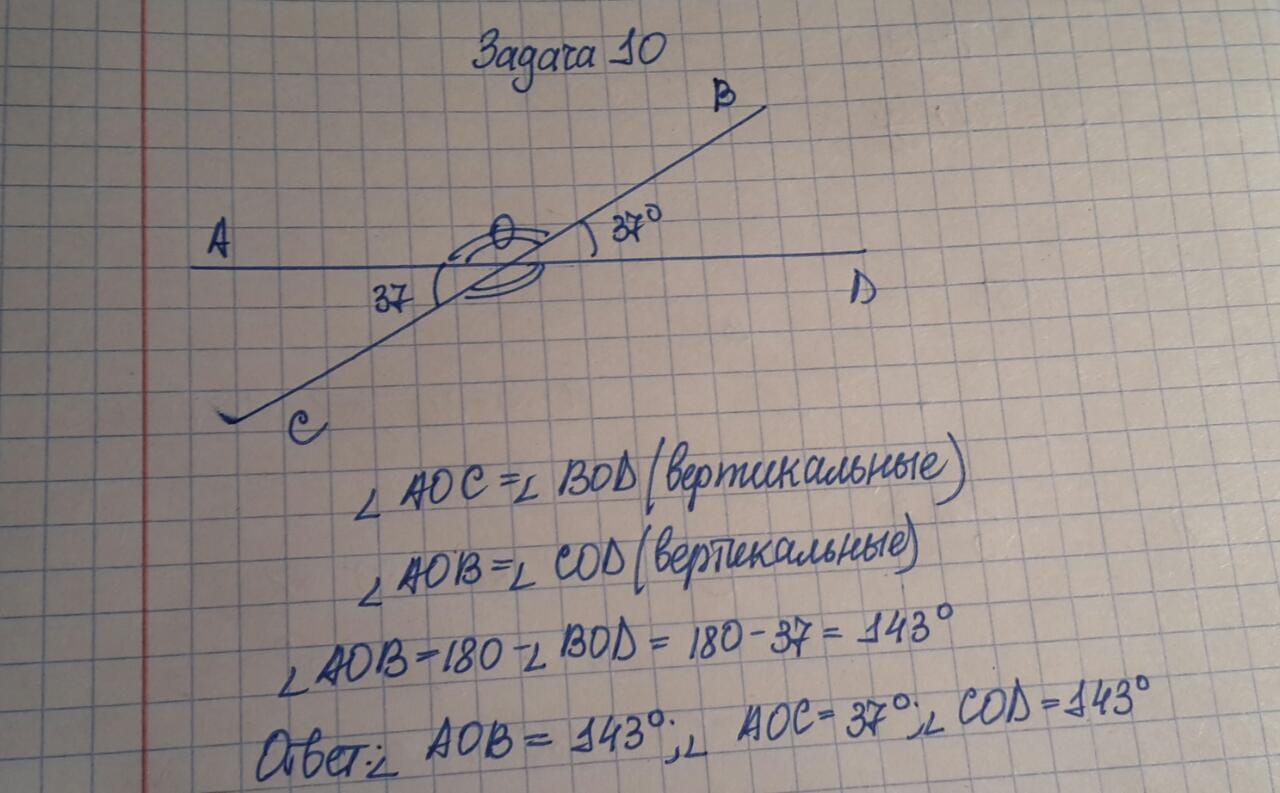 Задача 10
B
A
O
37°
37
D
C
∠ AOC = ∠ BOD (вертикальные)
∠ AOB = ∠ COD (вертикальные)
∠ AOB = 180 - ∠ BOD = 180 - 37 = 143°
Ответ: ∠ AOB = 143°; ∠ AOC = 37°; ∠ COD = 143°